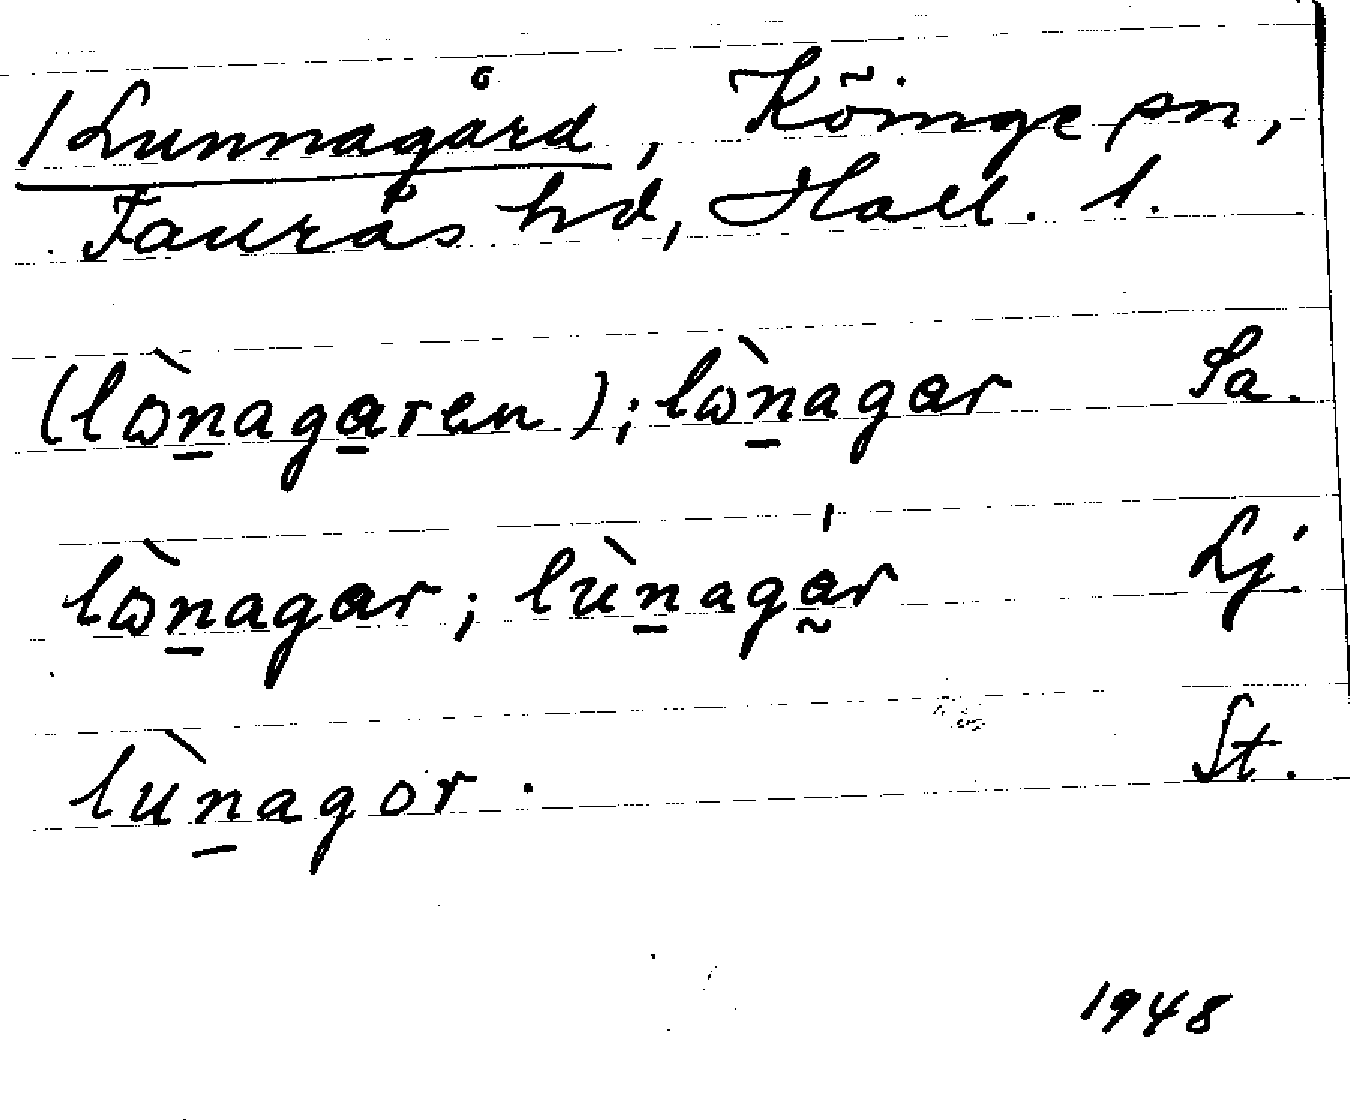 /Lunnagård, Köinge sn,
Faurås hd, Hall. l.
(lɷ̀n̲aga̲ren); lɷ̀n̲agar Sa.
lɷ̀n̲agar; lùn̲agá̰r Lj.
lùn̲agor. St.
1948